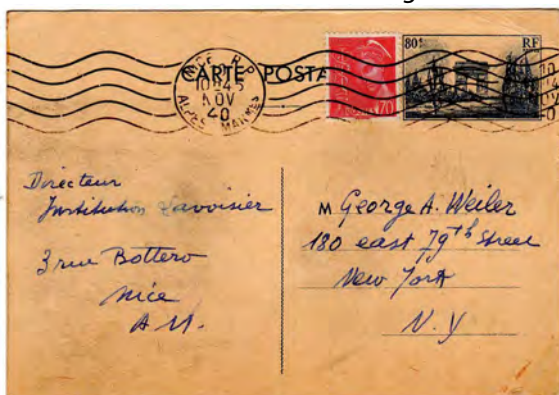 80c
RF
CARTE POSTA
NICE R.P.
10H45
NOV
40
ALPES MARMES
70
Directeur
Institution Lavoisier
3 rue Bottero
Nice
A.M.
M George A. Weiler
180 east 79th Street
New York
N.Y